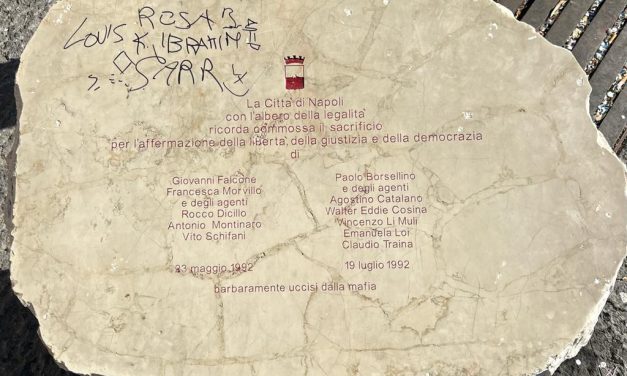 ROSA B
LOUIS K. IBRAHIM
SARR
La Città di Napoli
con l'albero della legalità
ricorda commossa il sacrificio
per l'affermazione della libertà, della giustizia e della democrazia
di
Giovanni Falcone
Francesca Morvillo
e degli agenti
Rocco Dicillo
Antonio Montinaro
Vito Schifani
23 maggio 1992
Paolo Borsellino
e degli agenti
Agostino Catalano
Walter Eddie Cosina
Vincenzo Li Muli
Emanuela Loi
Claudio Traina
19 luglio 1992
barbaramente uccisi dalla mafia